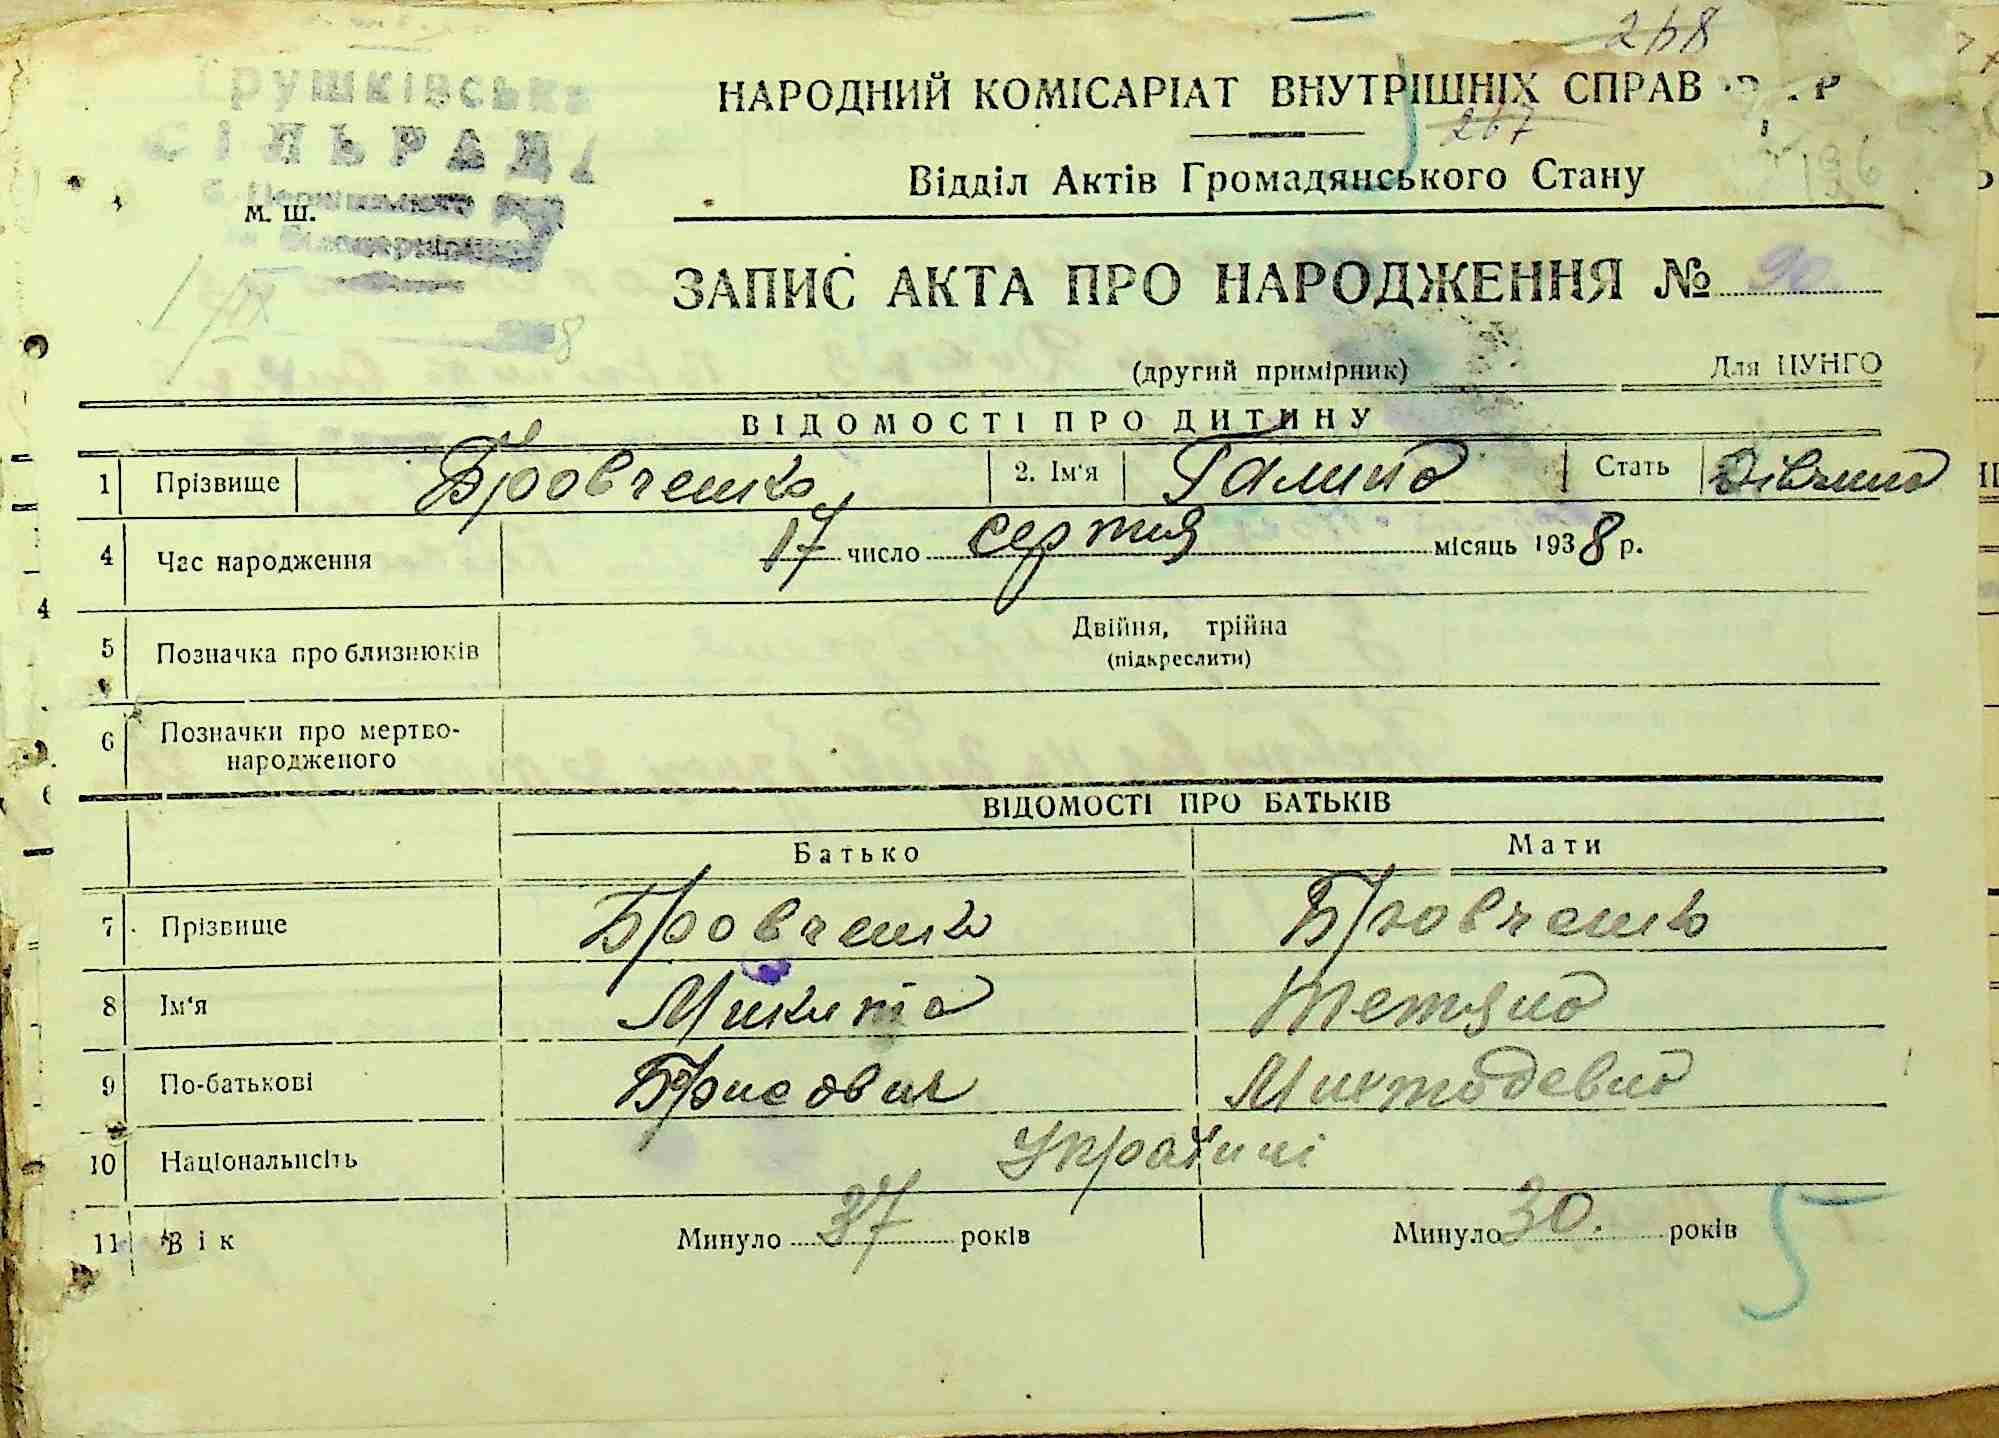 268
Грушківська
НАРОДНИЙ КОМІСАРІАТ ВНУТРІШНІХ СПРАВ
СІЛЬРАДА
267
196
Відділ Актів Громадянського Стану
м. ш.
ЗАПИС АКТА ПРО НАРОДЖЕННЯ № 90
(другий примірник) Для ЦУНГО
ВІДОМОСТІ ПРО ДИТИНУ
1 Прізвище Бровченко 2. Ім'я Галина Стать Дівчина
4 Час народження 17 число серпня місяць 1938 р.
5 Позначка про близнюків Двійня, трійна
(підкреслити)
6 Позначки про мертво-
народженого
ВІДОМОСТІ ПРО БАТЬКІВ
Батько Мати
7 Прізвище Бровченко Бровченко
8 Ім'я Микита Тетяна
9 По-батькові Борисович
10 Національність Українці
11 Вік Минуло 37 років Минуло 30. років
5